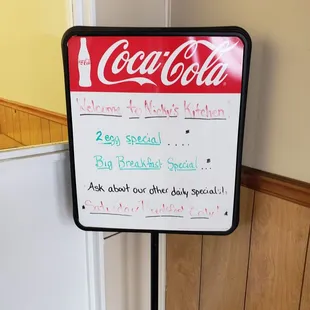 Coca-Cola
Welcome to Nicky's Kitchen
2 egg special ....*
Big Breakfast Special..*
Ask about our other daily specials
Only